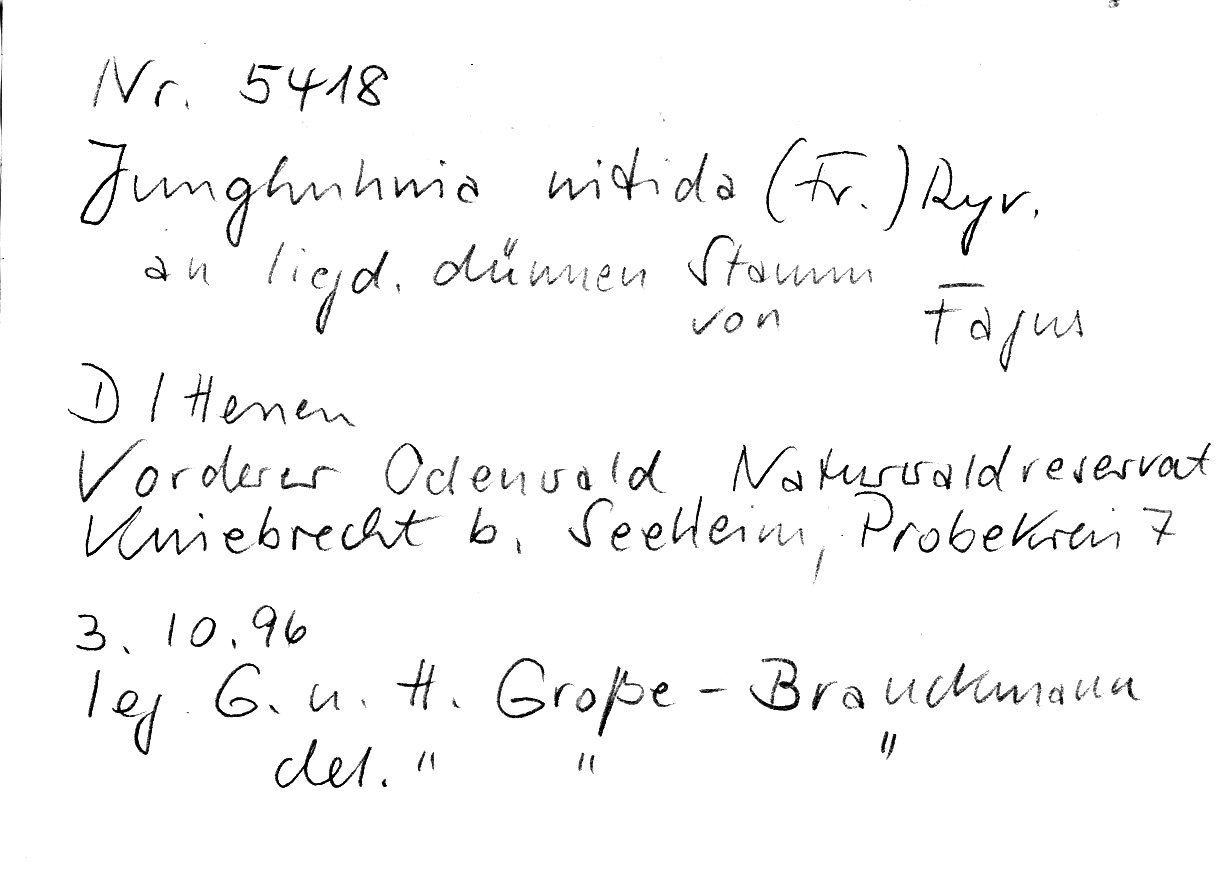 Nr. 5418
Junghuhnia nitida (Fr.) Ryv.
an liegd. dünnen Stamm
von Fagus
D / Hessen
Vorderer Odenwald Naturwaldreservat
Kniebrecht b. Seeheim, Probekreis 7
3. 10. 96
leg G. u. H. Große - Brauckmann
det. " " "